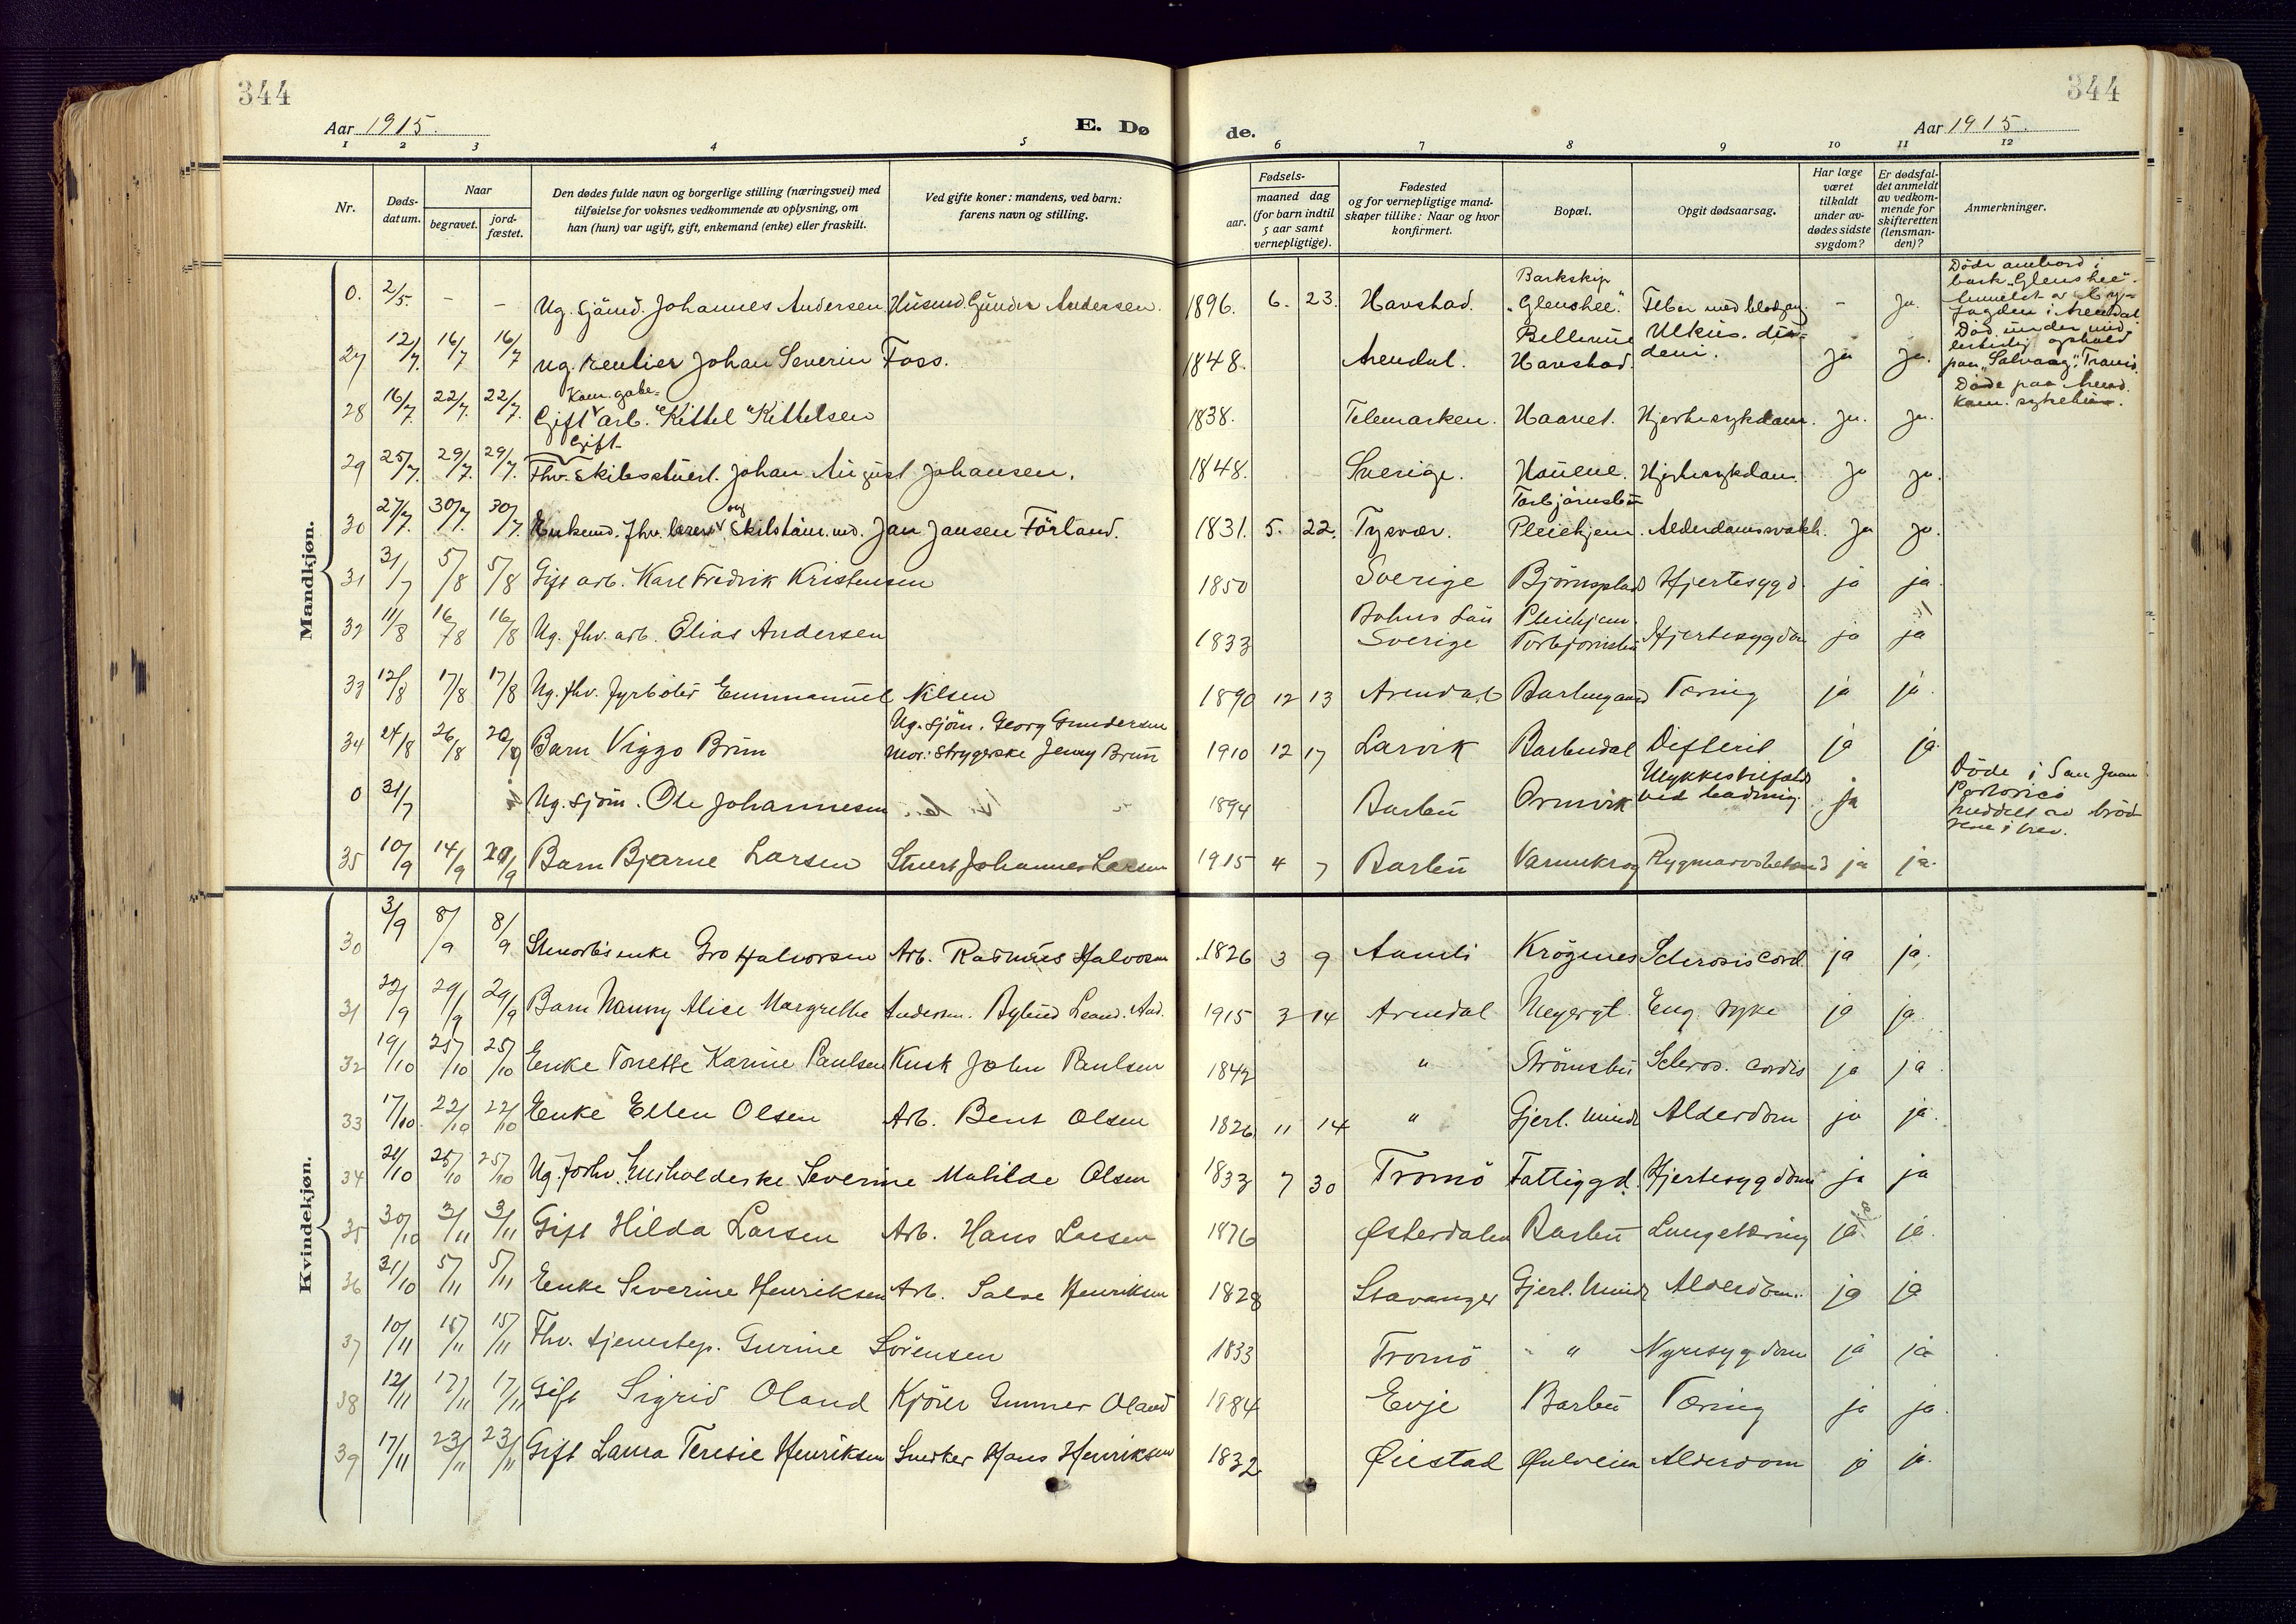 344
344
Aar 1915.
E. Dø
de.
Aar 1915.
1 2 3 4 5 6 7 8 9 10 11 12
Nr.
Døds-
datum.
Naar
begravet.
jord-
fæstet.
Den dødes fulde navn og borgerlige stilling (næringsvei) med
tilføielse for voksnes vedkommende av oplysning, om
han (hun) var ugift, gift, enkemand (enke) eller fraskilt.
Ved gifte koner: mandens, ved barn:
farens navn og stilling.
Fødsels-
aar.
maaned dag
(for barn indtil
5 aar samt
vernepligtige).
Fødested
og for vernepligtige mand-
skaper tillike: Naar og hvor
konfirmert.
Bopæl.
Opgit dødsaarsag.
Har læge
været
tilkaldt
under av-
dødes sidste
sygdom?
Er dødsfal-
det anmeldt
av vedkom-
mende for
skifteretten
(lensman-
den)?
Anmerkninger.
Mandkjøn.
0. 2/5. - - Ug. Sjömd. Johannes Andersen Husmd. Gunder Andersen. 1896. 6. 23. Havstad. Barkskip "Glenshee". Feber med - ja. Döde ombord i bark "Glenshee".
27 12/7. 16/7 16/7 Ug. rentier Johan Severin Foss. 1848. Arendal. Bellevue Havstad. Ulkus. duodeni. ja ja. Död under ophold paa
28 16/7. 22/7. 22/7. Gift arb. Kittel Kittelsen 1838. Telemarken. Haavet. Hjertesykdom. ja. ja. Döde paa Arend. kom. sykehus.
29 25/7. 29/7. 29/7. Gift Fhv. skibsstuert. Johan August Johansen. 1848. Sverige. Hauene. Hjertesykdom. ja ja.
30 27/7. 30/7. 30/7. Enkemd. fhv. og Skibstömmermd. Jan Jansen Förland. 1831. 5. 22. Tysvær. Torbjörnsbu Pleiehjem. Alderdomssvakh. ja ja.
31 31/7 5/8 5/8 Gift arb. Karl Fredrik Kristensen 1850 Sverige Björnsplads Hjertesygd. ja ja.
32 11/8 16/8 16/8 Ug. fhv. arb. Elias Andersen 1833 Bohus Län Sverige Pleiehjem Torbjornsbu Hjertesygdom ja ja
33 12/8 17/8 17/8 Ug. fhv. fyrböter Emmanuel Nilsen 1890 12 13 Arendal Barbugaard Tæring ja ja.
34 24/8 26/8 Barn Viggo Brun Ug. sjöm. Georg Gundersen mor: strygerske Jenny Brun 1910 12 17 Larvik Barbudal Difterit ja ja.
0 31/7 Ug. sjöm. Ole Johannesen 1894 Barbu Ormvik Ulykkestilfælde ved ladning. ja Döde i San Juan Portorico meddelt av i brev.
35 10/9 14/9 Barn Bjarne Larsen Stuert Johannes Larsen 1915 4 7 Barbu Varmekrog Rygmarvsbetænd ja ja.
Kvindekjøn.
30 3/9 8/9 8/9 enke Gro Halvorsen Arb. Rasmus Halvorsen 1826 3 9 Aamli Krögenes Sclerosis cord. ja ja.
31 22/9 29/9 29/9 Barn Nanny Alice Margrethe Andersen. Leand. And. 1915 3 14 Arendal Meyergt. Eng. syke ja ja.
32 19/10 25/10 25/10 Enke Torrette Karine Paulsen Kusk John Paulsen 1842 " Strömsbu Scleros. cordis ja ja
33 17/10. 22/10 22/10 Enke Ellen Olsen Arb. Bent Olsen 1826 11 14 " Gjerl. Minde Alderdom ja ja.
34 21/10 25/10 25/10 Ug. forhv. husholderske Severine Matilde Olsen 1833 7 30 Tromö Fattiggd. Hjertesygdom ja ja
35 30/10 3/11 3/11 Gift Hilda Larsen Arb. Hans Larsen 1876 Østerdalen Barbu Lungetæring ja. ja.
36 31/10 5/11 5/11 Enke Severine Henriksen Arb. Salve Henriksen 1828 Stavanger Gjerl. Minde Alderdom. ja ja
37 10/11 15/11 15/11 Fhv. tjenestep. Gurine Sörensen 1833 Tromö " Nyresygdom ja ja
38 12/11 17/11 17/11 Gift Sigrid Oland Kjörer Gunner Oland 1884 Evje Barbu Tæring ja ja.
39 17/11 23/11 23/11 Gift Laura Teresie Henriksen Snedker Hans Henriksen 1832 Øiestad Alderdom ja ja.